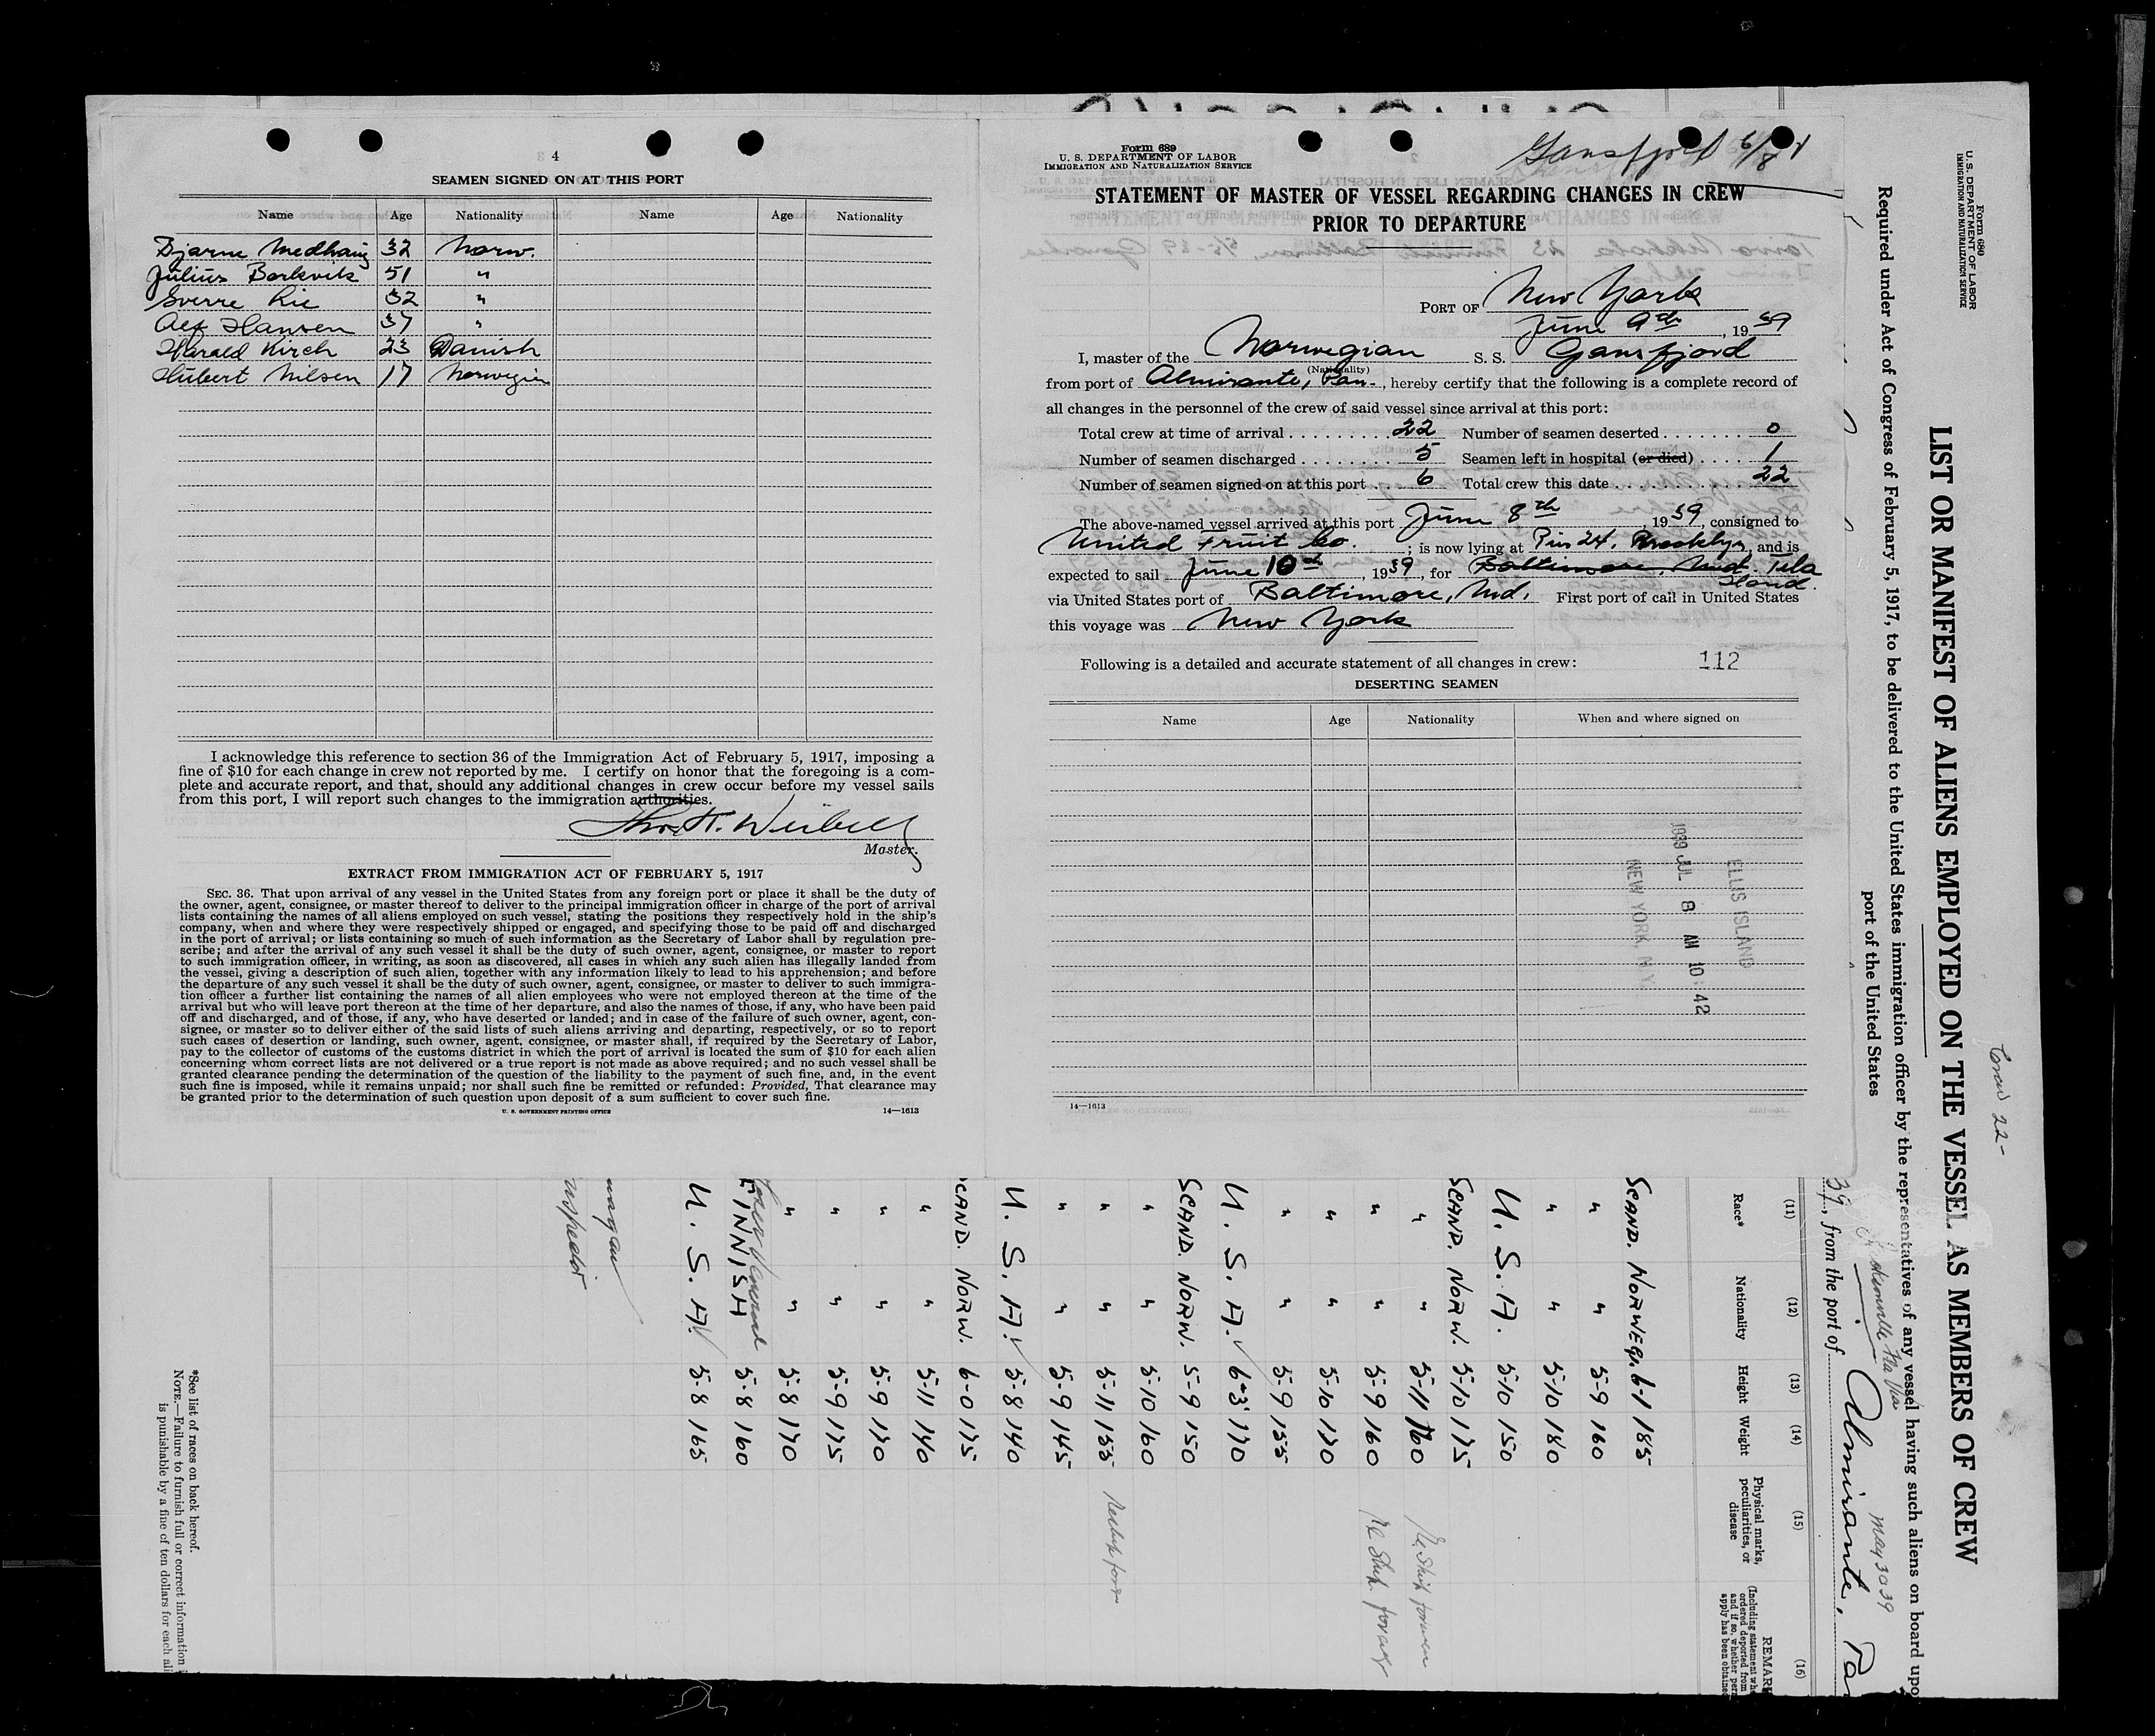 4
SEAMEN SIGNED ON AT THIS PORT
Name Age Nationality Name Age Nationality
Bjarne Medhaug 32 Norw.
Julius Borkvik 51 "
Sverre Lie 32 "
Alf Hansen 37 "
Harald Kirch 23 Danish
Hubert Nilsen 17 Norwegian
I acknowledge this reference to section 36 of the Immigration Act of February 5, 1917, imposing a
fine of $10 for each change in crew not reported by me. I certify on honor that the foregoing is a com-
plete and accurate report, and that, should any additional changes in crew occur before my vessel sails
from this port, I will report such changes to the immigration authorities.
Master.
EXTRACT FROM IMMIGRATION ACT OF FEBRUARY 5, 1917
SEC. 36. That upon arrival of any vessel in the United States from any foreign port or place it shall be the duty of
the owner, agent, consignee, or master thereof to deliver to the principal immigration officer in charge of the port of arrival
lists containing the names of all aliens employed on such vessel, stating the positions they respectively hold in the ship's
company, when and where they were respectively shipped or engaged, and specifying those to be paid off and discharged
in the port of arrival; or lists containing so much of such information as the Secretary of Labor shall by regulation pre-
scribe; and after the arrival of any such vessel it shall be the duty of such owner, agent, consignee, or master to report
to such immigration officer, in writing, as soon as discovered, all cases in which any such alien has illegally landed from
the vessel, giving a description of such alien, together with any information likely to lead to his apprehension; and before
the departure of any such vessel it shall be the duty of such owner, agent, consignee, or master to deliver to such immigra-
tion officer a further list containing the names of all alien employees who were not employed thereon at the time of the
arrival but who will leave port thereon at the time of her departure, and also the names of those, if any, who have been paid
off and discharged, and of those, if any, who have deserted or landed; and in case of the failure of such owner, agent, con-
signee, or master so to deliver either of the said lists of such aliens arriving and departing, respectively, or so to report
such cases of desertion or landing, such owner, agent, consignee, or master shall, if required by the Secretary of Labor,
pay to the collector of customs of the customs district in which the port of arrival is located the sum of $10 for each alien
concerning whom correct lists are not delivered or a true report is not made as above required; and no such vessel shall be
granted clearance pending the determination of the question of the liability to the payment of such fine, and, in the event
such fine is imposed, while it remains unpaid; nor shall such fine be remitted or refunded: Provided, That clearance may
be granted prior to the determination of such question upon deposit of a sum sufficient to cover such fine.
U. S. GOVERNMENT PRINTING OFFICE 14—1613
Form 689
U. S. DEPARTMENT OF LABOR
IMMIGRATION AND NATURALIZATION SERVICE
Gansfjord 6/8
STATEMENT OF MASTER OF VESSEL REGARDING CHANGES IN CREW
PRIOR TO DEPARTURE
PORT OF New York
June 9th, 1939
I, master of the Norwegian S. S. Gansfjord
(Nationality)
from port of Almirante, Pan-, hereby certify that the following is a complete record of
all changes in the personnel of the crew of said vessel since arrival at this port:
Total crew at time of arrival 22 Number of seamen deserted 0
Number of seamen discharged 5 Seamen left in hospital (or died) 1
Number of seamen signed on at this port 6 Total crew this date 22
The above-named vessel arrived at this port June 8th, 1939, consigned to
United Fruit Co.; is now lying at Pier 24, Brooklyn, and is
expected to sail June 10th, 1939, for Baltimore, Md. Tela
Hond.
via United States port of Baltimore, Md. First port of call in United States
this voyage was New York
Following is a detailed and accurate statement of all changes in crew: 112
DESERTING SEAMEN
Name Age Nationality When and where signed on
ELLIS ISLAND
1939 JUL 8 AM 10:42
NEW YORK, N.Y.
14—1613
Form 680
U. S. DEPARTMENT OF LABOR
IMMIGRATION AND NATURALIZATION SERVICE
Crew 22-
LIST OR MANIFEST OF ALIENS EMPLOYED ON THE VESSEL AS MEMBERS OF CREW
Required under Act of Congress of February 5, 1917, to be delivered to the United States immigration officer by the representatives of any vessel having such aliens on board upo
port of the United States
May 30 39
39, from the port of Almirante, Pa
(11) (12) (13) (14) (15) (16)
Race* Nationality Height Weight Physical marks, peculiarities, or disease REMARK
SCAND. NORWEG. 6-1 185
" " 5-9 160
" " 5-10 180
U. S. A. 5-10 150
SCAND. NORW. 5-10 175
" " 5-11 160
" " 5-9 160
" " 5-10 170
" " 5-9 155
U. S. A. 6-3 170
SCAND. NORW. 5-9 150
" " 5-10 160
" " 5-11 155
" " 5-9 145
U. S. A. 5-8 140
SCAND. NORW. 6-0 175
" " 5-11 140
" " 5-9 170
" " 5-9 175
" " 5-8 170
FINNISH 5-8 160
U. S. A. 5-8 165
*See list of races on back hereof.
NOTE.—Failure to furnish full or correct information
is punishable by a fine of ten dollars for each ali